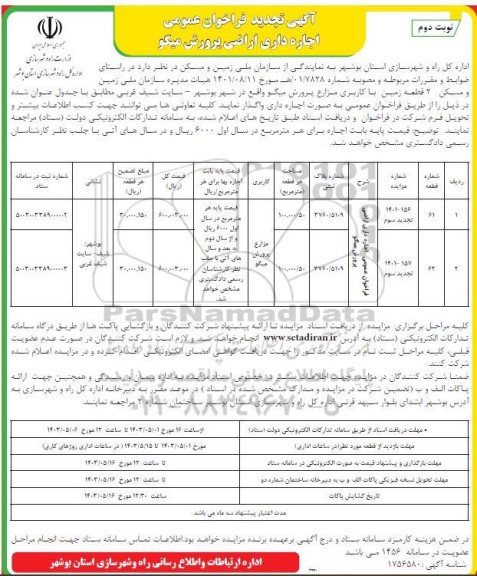 آگهی تجدید فراخوان عمومی
اجاره داری اراضی پرورش میگو
نوبت دوم
جمهوری اسلامی ایران
وزارت راه و شهرسازی
اداره کل راه و شهرسازی استان بوشهر
اداره کل راه و شهرسازی استان بوشهر به نمایندگی از سازمان ملی زمین و مسکن در نظر دارد در راستای
ضوابط و مقررات مربوطه و مصوبه شماره ۰۱/۷۸۲۸/هـ مورخ ۱۴۰۱/۰۸/۱۱ هیات مدیره سازمان ملی زمین
و مسکن ۲ قطعه زمین با کاربری مزارع پرورش میگو واقع در شهر بوشهر - سایت شیف غربی مطابق با جدول عنوان شده
در ذیل را از طریق فراخوان عمومی به صورت اجاره داری واگذار نماید. کلیه تعاونی ها می توانند جهت کسب اطلاعات بیشتر و
تحویل فرم شرکت در فراخوان و دریافت اسناد طبق تاریخ های اعلام شده، به سامانه تدارکات الکترونیکی دولت (ستاد) مراجعه
نمایند. توضیح: قیمت پایه بابت اجاره برای هر مترمربع در سال اول ۶۰۰۰ ریال و در سال های آتی با جلب نظر کارشناسان
رسمی دادگستری مشخص خواهد شد.
ردیف
شماره قطعه
شماره مزایده
شرح
شماره پلاک ثبتی
مساحت هر قطعه (مترمربع)
کاربری
قیمت پایه بابت اجاره بها برای هر مترمربع (ریال)
قیمت کل (ریال)
مبلغ تضمین هر قطعه (ریال)
نشانی
شماره ثبت در سامانه ستاد
۱
۶۱
۱۴۰۱-۱۵۶ تجدید سوم
فراخوان عمومی اجاره داری اراضی پرورش میگو
۳۷۶۰/۵۱۰۹
۱۰۰,۰۰۰/۵۰
مزارع پرورش میگو
قیمت پایه هر مترمربع در سال اول ۶۰۰۰ ریال و از سال دوم به بعد و سال های آتی با جلب نظر کارشناسان رسمی دادگستری مشخص خواهد شد.
۶۰۰,۰۰۳,۰۰۰
۳۰,۰۰۰,۱۵۰
بوشهر: شیف- سایت شیف غربی
۵۰۰۳۰۰۳۳۸۹۰۰۰۰۰۲
۲
۶۲
۱۴۰۱-۱۵۷ تجدید سوم
۳۷۶۰/۵۱۰۹
۱۰۰,۰۰۰/۵۰
۶۰۰,۰۰۳,۰۰۰
۳۰,۰۰۰,۱۵۰
۵۰۰۳۰۰۳۳۸۹۰۰۰۰۰۳
کلیه مراحل برگزاری مزایده از دریافت اسناد مزایده تا ارائه پیشنهاد شرکت کنندگان و بازگشایی پاکت ها از طریق درگاه سامانه
تدارکات الکترونیکی (ستاد) به آدرس www.setadiran.ir انجام خواهد شد. و لازم است شرکت کنندگان در صورت عدم عضویت
قبلی، کلیه مراحل ثبت نام در سایت مذکور را جهت دریافت گواهی امضای الکترونیکی اقدام کرده و در مزایده اعلام شده
شرکت کنند.
ضمنا شرکت کنندگان در مزایده جهت اطلاعات بیشتر در خصوص اسناد مزایده به اداره پیمان و رسیدگی و همچنین جهت ارائه
پاکات الف و ب (تضمین شرکت در مزایده و مدارک مشخص شده در اسناد) در موعد مقرر به دبیرخانه اداره کل راه و شهرسازی به
آدرس بوشهر ابتدای بلوار سپهبد قرنی اداره کل راه و شهرسازی استان بوشهر ساختمان شماره ۲ مراجعه نمایند.
• مهلت دریافت اسناد از طریق سامانه تدارکات الکترونیکی دولت (ستاد)
از ساعت ۱۶ مورخ ۱۴۰۳/۰۵/۰۱ تا ساعت ۱۲ مورخ ۱۴۰۳/۰۵/۰۶
مهلت بازدید از قطعه مورد نظر (در ساعات اداری)
مورخ ۱۴۰۳/۰۵/۰۱ تا ۱۴۰۳/۰۵/۱۵ (در ساعات اداری روزهای کاری)
مهلت بارگذاری و پیشنهاد قیمت به صورت الکترونیکی در سامانه ستاد
تا ساعت ۱۲ مورخ ۱۴۰۳/۰۵/۱۶
مهلت تحویل نسخه فیزیکی پاکات الف و ب به دبیرخانه ساختمان شماره دو
تا ساعت ۱۲ مورخ ۱۴۰۳/۰۵/۱۶
تاریخ گشایش پاکات
ساعت ۱۲:۳۰ مورخ ۱۴۰۳/۰۵/۱۶
مدت اعتبار پیشنهاد سه ماه می باشد
در ضمن هزینه کارمزد سامانه ستاد و درج آگهی برعهده برنده مزایده خواهد بود. اطلاعات تماس سامانه ستاد جهت انجام مراحل
عضویت در سامانه ۱۴۵۶ می باشد
شناسه آگهی: ۱۷۵۶۵۸۰
اداره ارتباطات و اطلاع رسانی راه و شهرسازی استان بوشهر
ParsNamadData
۰۲۱-۸۸۳۴۹۶۷۰-۵